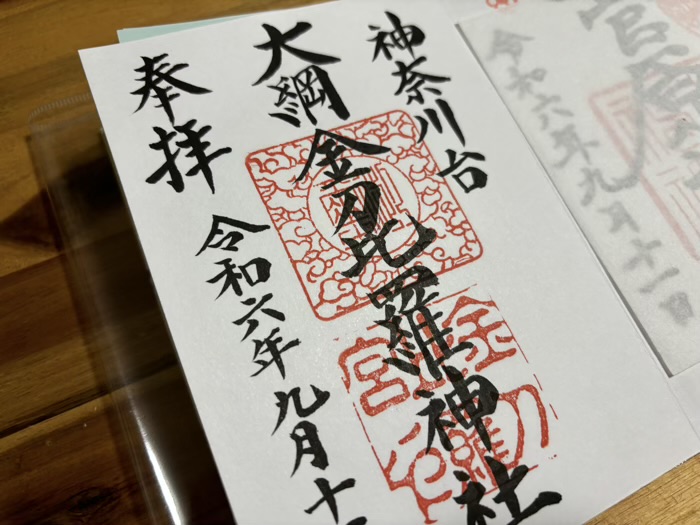 神奈川台
大綱
金刀比羅神社
奉拝
令和六年九月十
金刀比羅宮
令和六年九月十一日